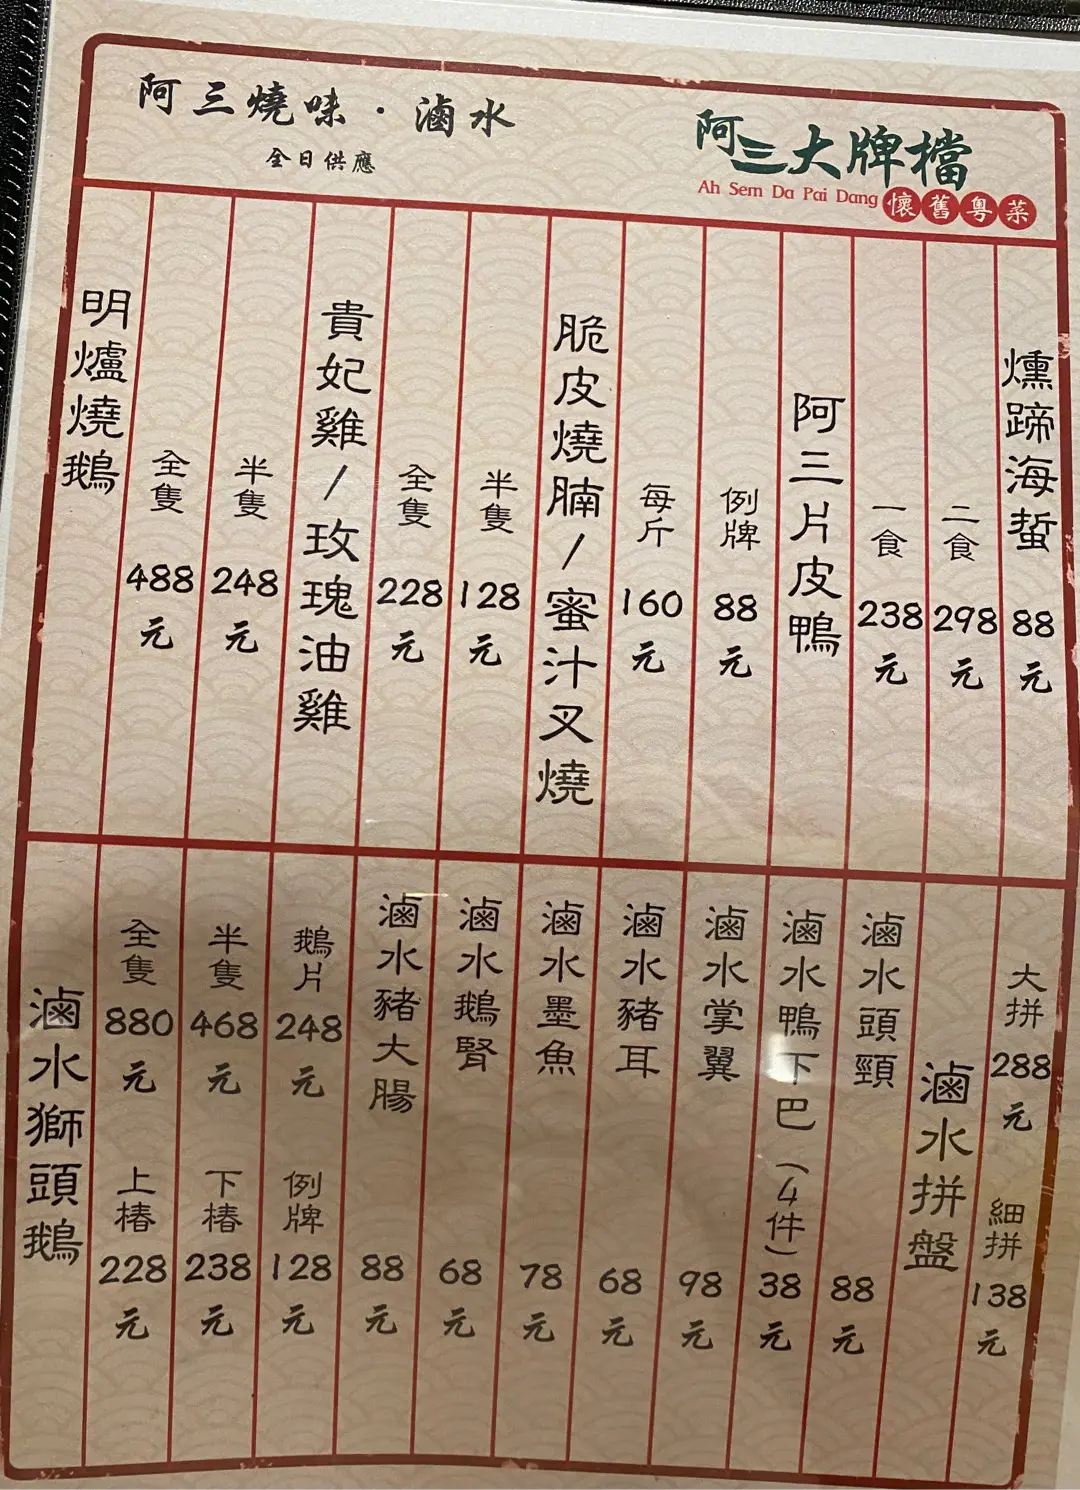 阿三燒味·滷水
全日供應
阿三大牌檔
Ah Sem Da Pai Dang
懷舊粵菜
明爐燒鵝
全隻 488元
半隻 248元
貴妃雞/玫瑰油雞
全隻 228元
半隻 128元
脆皮燒腩/蜜汁叉燒
每斤 160元
例牌 88元
阿三片皮鴨
一食 238元
二食 298元
燻蹄海蜇 88元
滷水獅頭鵝
全隻 880元
上樁 228元
半隻 468元
下樁 238元
鵝片 248元
例牌 128元
滷水豬大腸 88元
滷水鵝腎 68元
滷水墨魚 78元
滷水豬耳 68元
滷水掌翼 98元
滷水鴨下巴(4件) 38元
滷水頭頸 88元
滷水拼盤
大拼 288元
細拼 138元